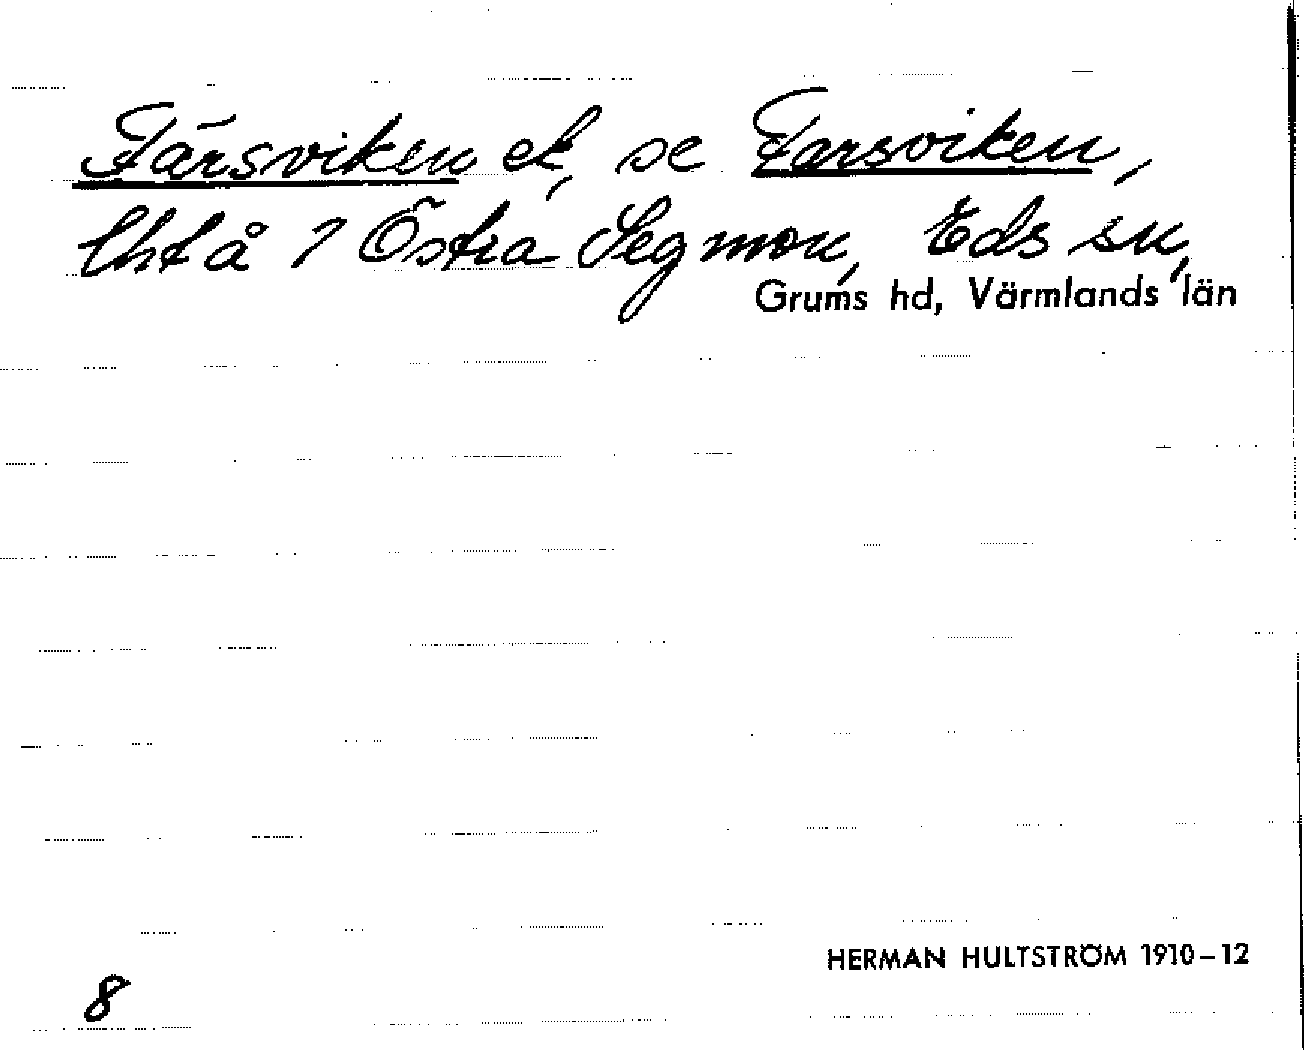 Färsviken ek, se Farsviken,
lht å 1 Östra Segmon, Eds sn,
Grums hd, Värmlands län
HERMAN HULTSTRÖM 1910–12
8